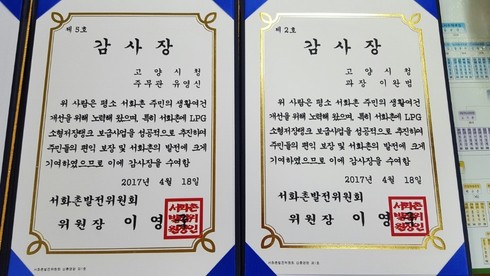 제 5 호
감 사 장
고 양 시 청
주무관 유영신
위 사람은 평소 서화촌 주민의 생활여건
개선을 위해 노력해 왔으며, 특히 서화촌에 LPG
소형저장탱크 보급사업을 성공적으로 추진하여
주민들의 편익 보장 및 서화촌의 발전에 크게
기여하였으므로 이에 감사장을 수여함
2017년 4월 18일
서화촌발전위원회
위 원 장 이 영
서화촌
발전위
원장인
제 2 호
감 사 장
고 양 시 청
과장 이완범
위 사람은 평소 서화촌 주민의 생활여건
개선을 위해 노력해 왔으며, 특히 서화촌에 LPG
소형저장탱크 보급사업을 성공적으로 추진하여
주민들의 편익 보장 및 서화촌의 발전에 크게
기여하였으므로 이에 감사장을 수여함
2017년 4월 18일
서화촌발전위원회
위 원 장 이 영
서화촌
발전위
원장인